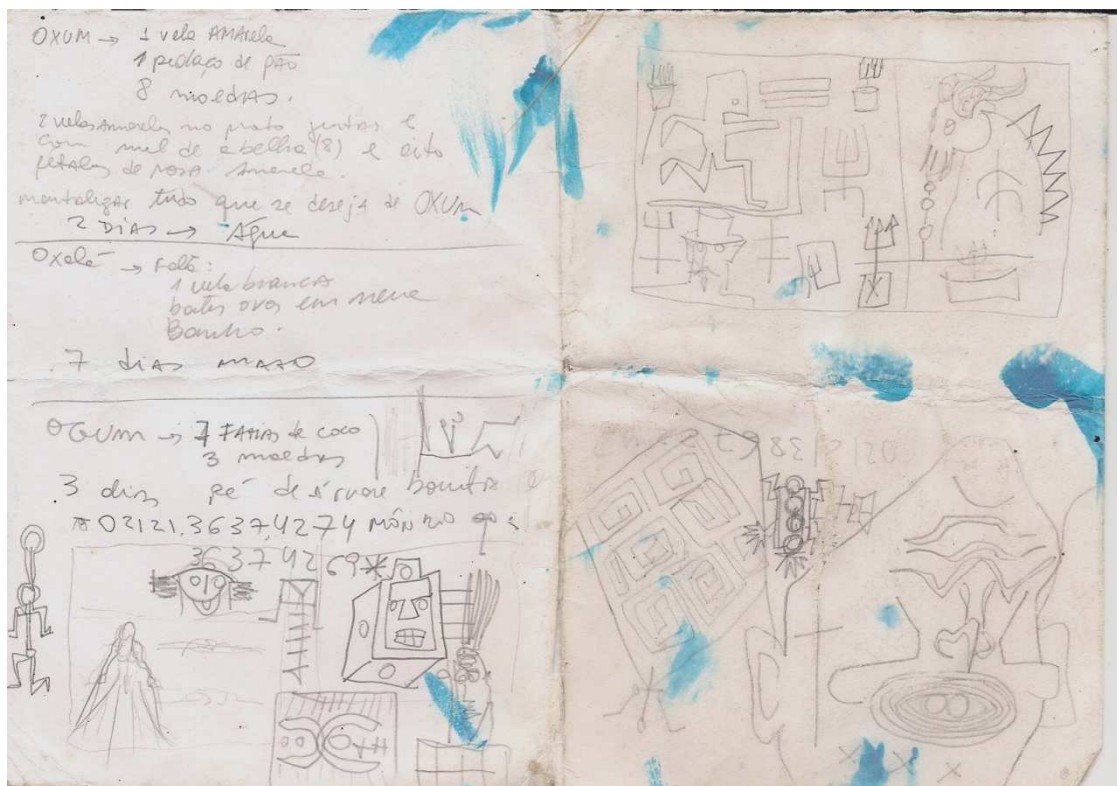 OXUM → 1 vela AMArela
1 pedaço de pão
8 moedas.
2 velas Amarelas no prato juntas e
com mel de abelha (8) e oito
pétalas de rosa Amarela.
mentalizar tudo que se deseja de OXUM
2 DIAS → Água
Oxalá →
1 vela branca
bater ovos em neve
Banho.
7 dias
OGUM → 7 FATIAS de coco
3 moedas
3 dias pé de árvore bonita
02121.3637,4274
3637 4269*